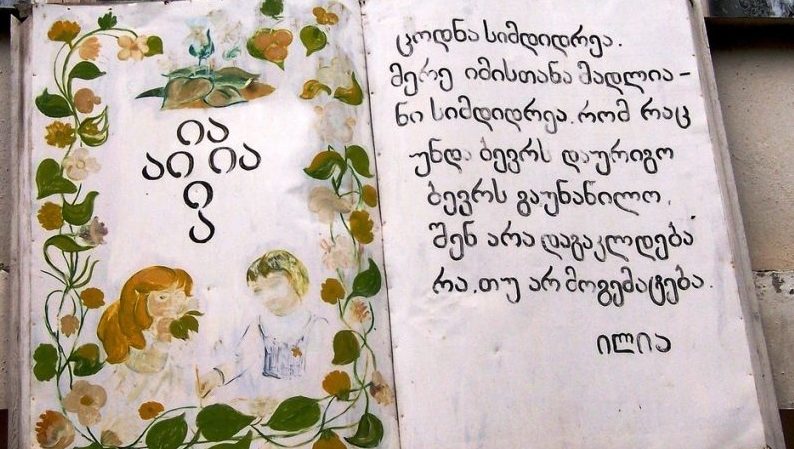 ია
აი ია
ი
ა
ცოდნა სიმდიდრეა.
მერე იმისთანა მადლია -
ნი სიმდიდრეა. რომ რაც
უნდა ბევრს დაურიგო
ბევრს გაუნაწილო,
შენ არა დაგაკლდება
რა. თუ არ მოგემატება.
ილია